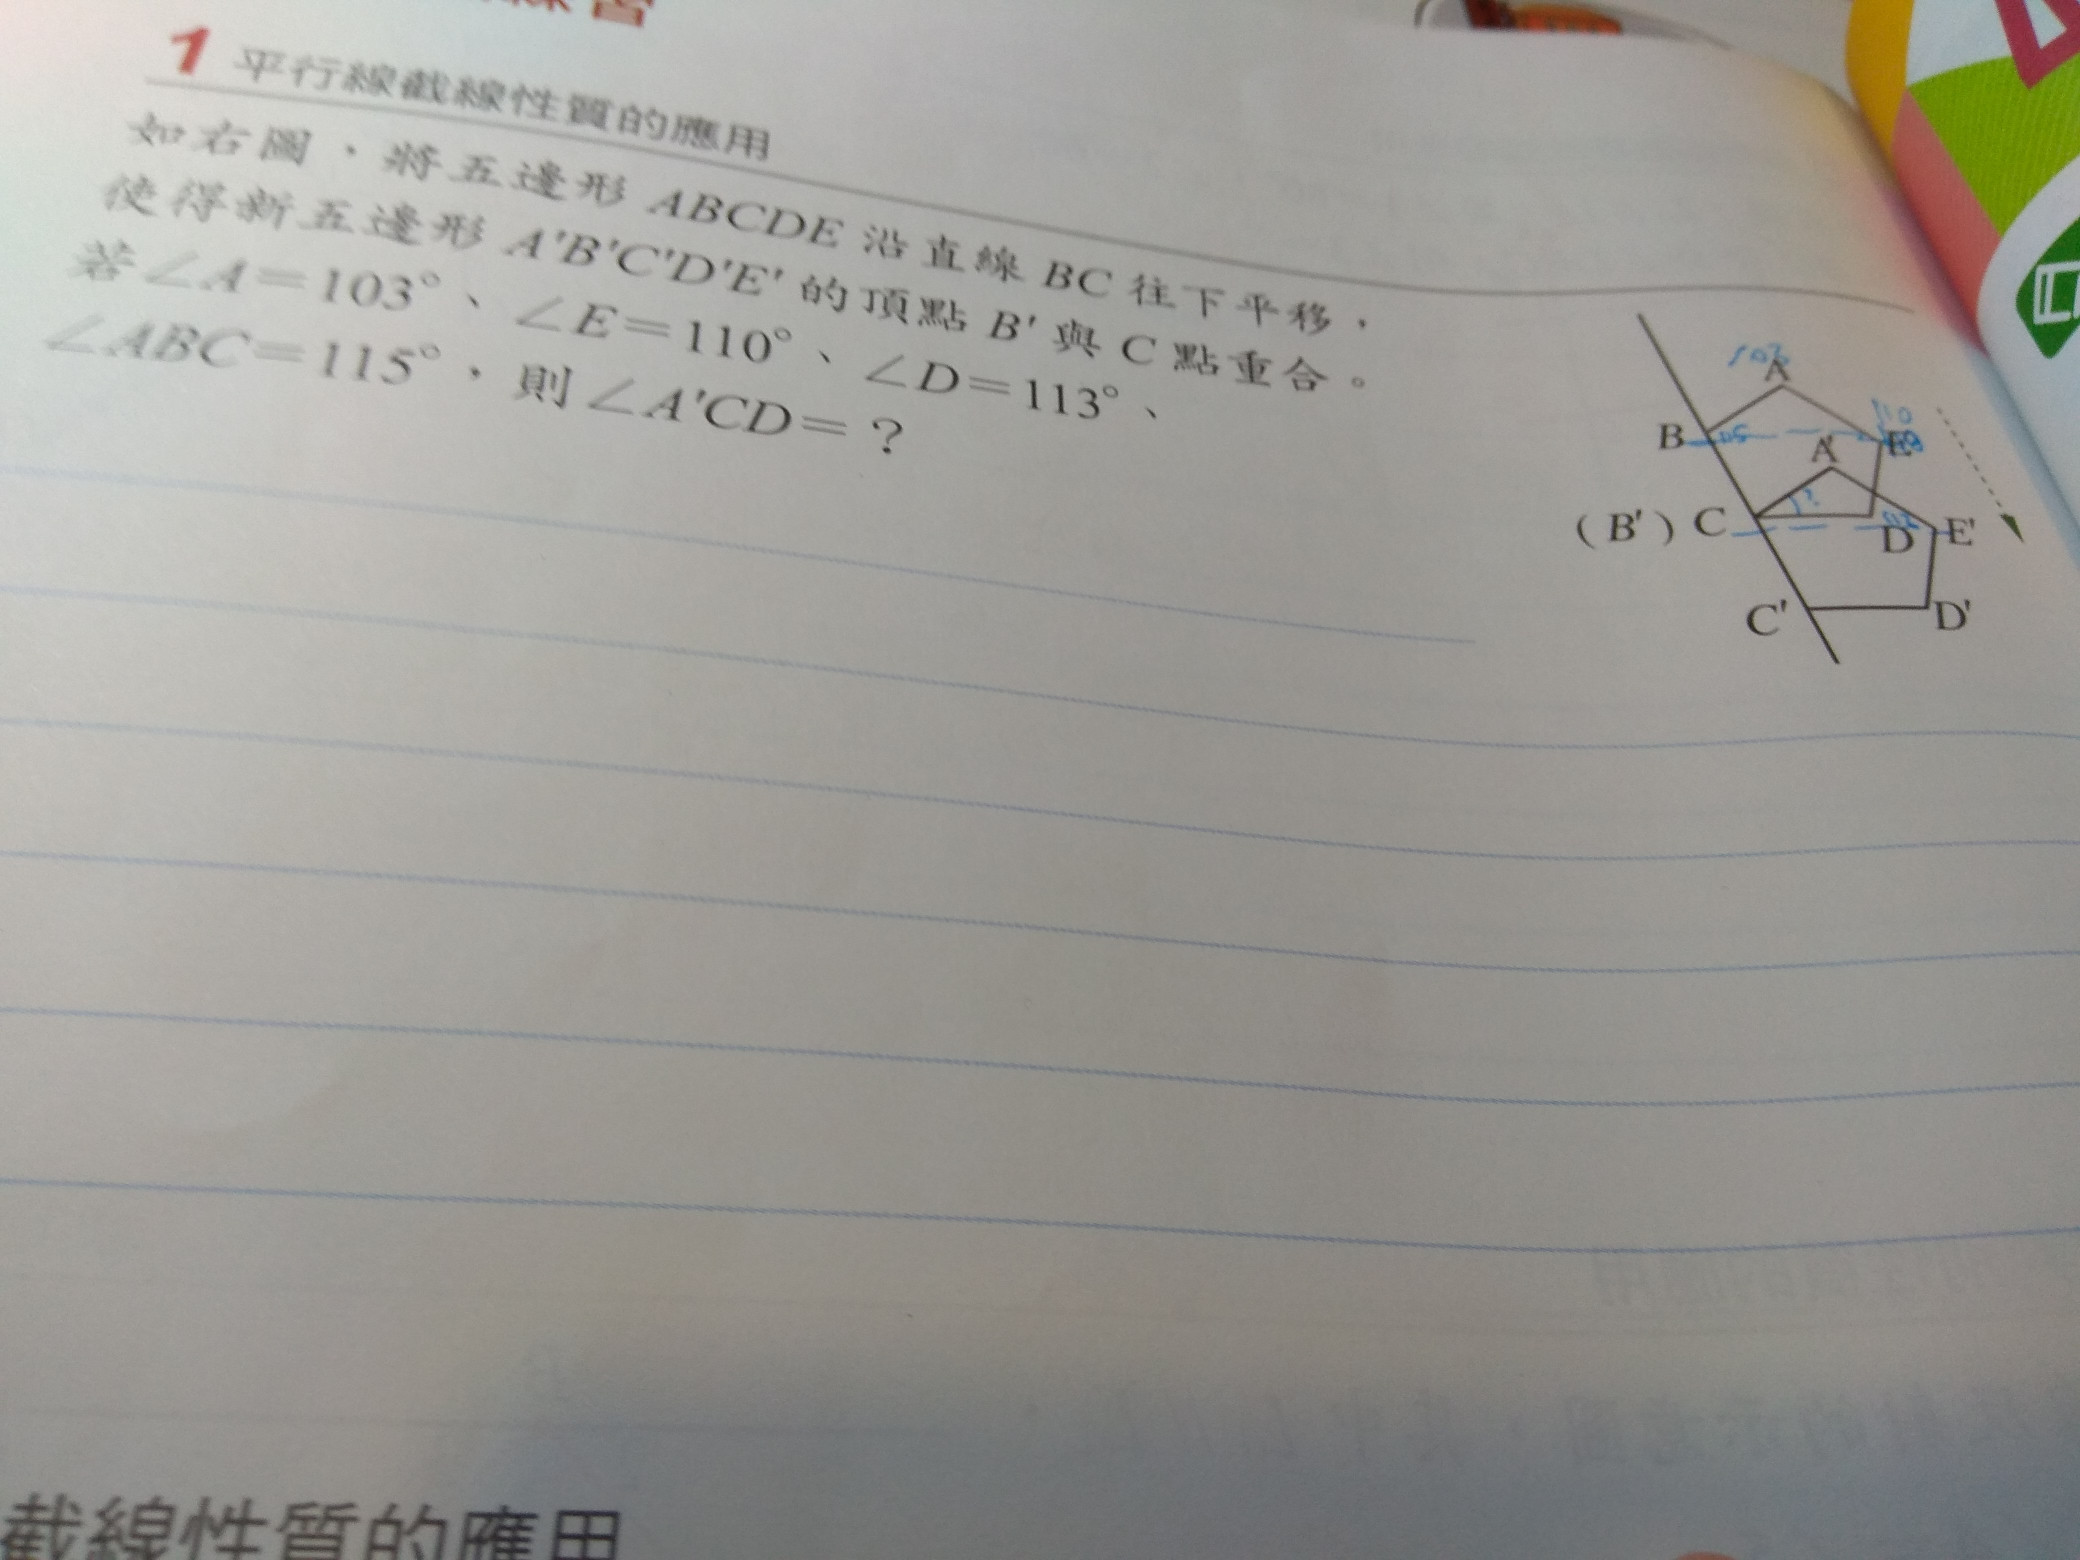 習
1 平行線截線性質的應用
如右圖，將五邊形 ABCDE 沿直線 BC 往下平移，
使得新五邊形 A'B'C'D'E' 的頂點 B' 與 C 點重合。
若∠A=103°、∠E=110°、∠D=113°、
∠ABC=115°，則∠A'CD=？
103
A
110
B
E
A'
?
(B') C
D
E'
C'
D'
截線性質的應用